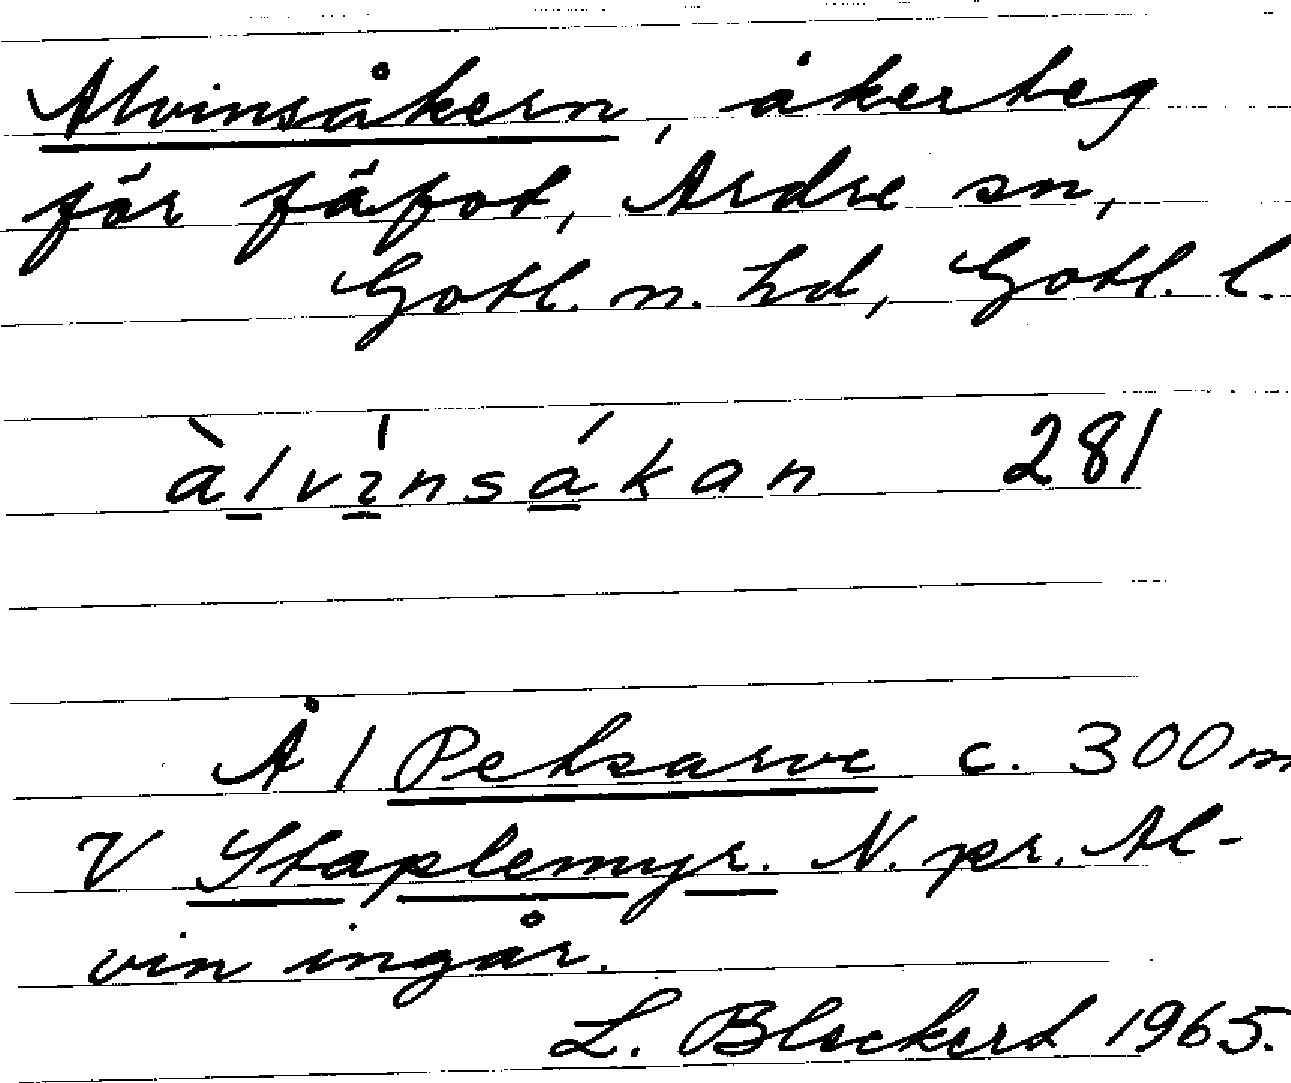 Alvinsåkern, åkerteg
för fäfot, Ardre sn,
Gotl. n. hd, Gotl. l.
àlvìnsákan 281
Å / Petsarve c. 300 m
V Staplemyr. N. pr. Al-
vin ingår.
L. Bleckert 1965.